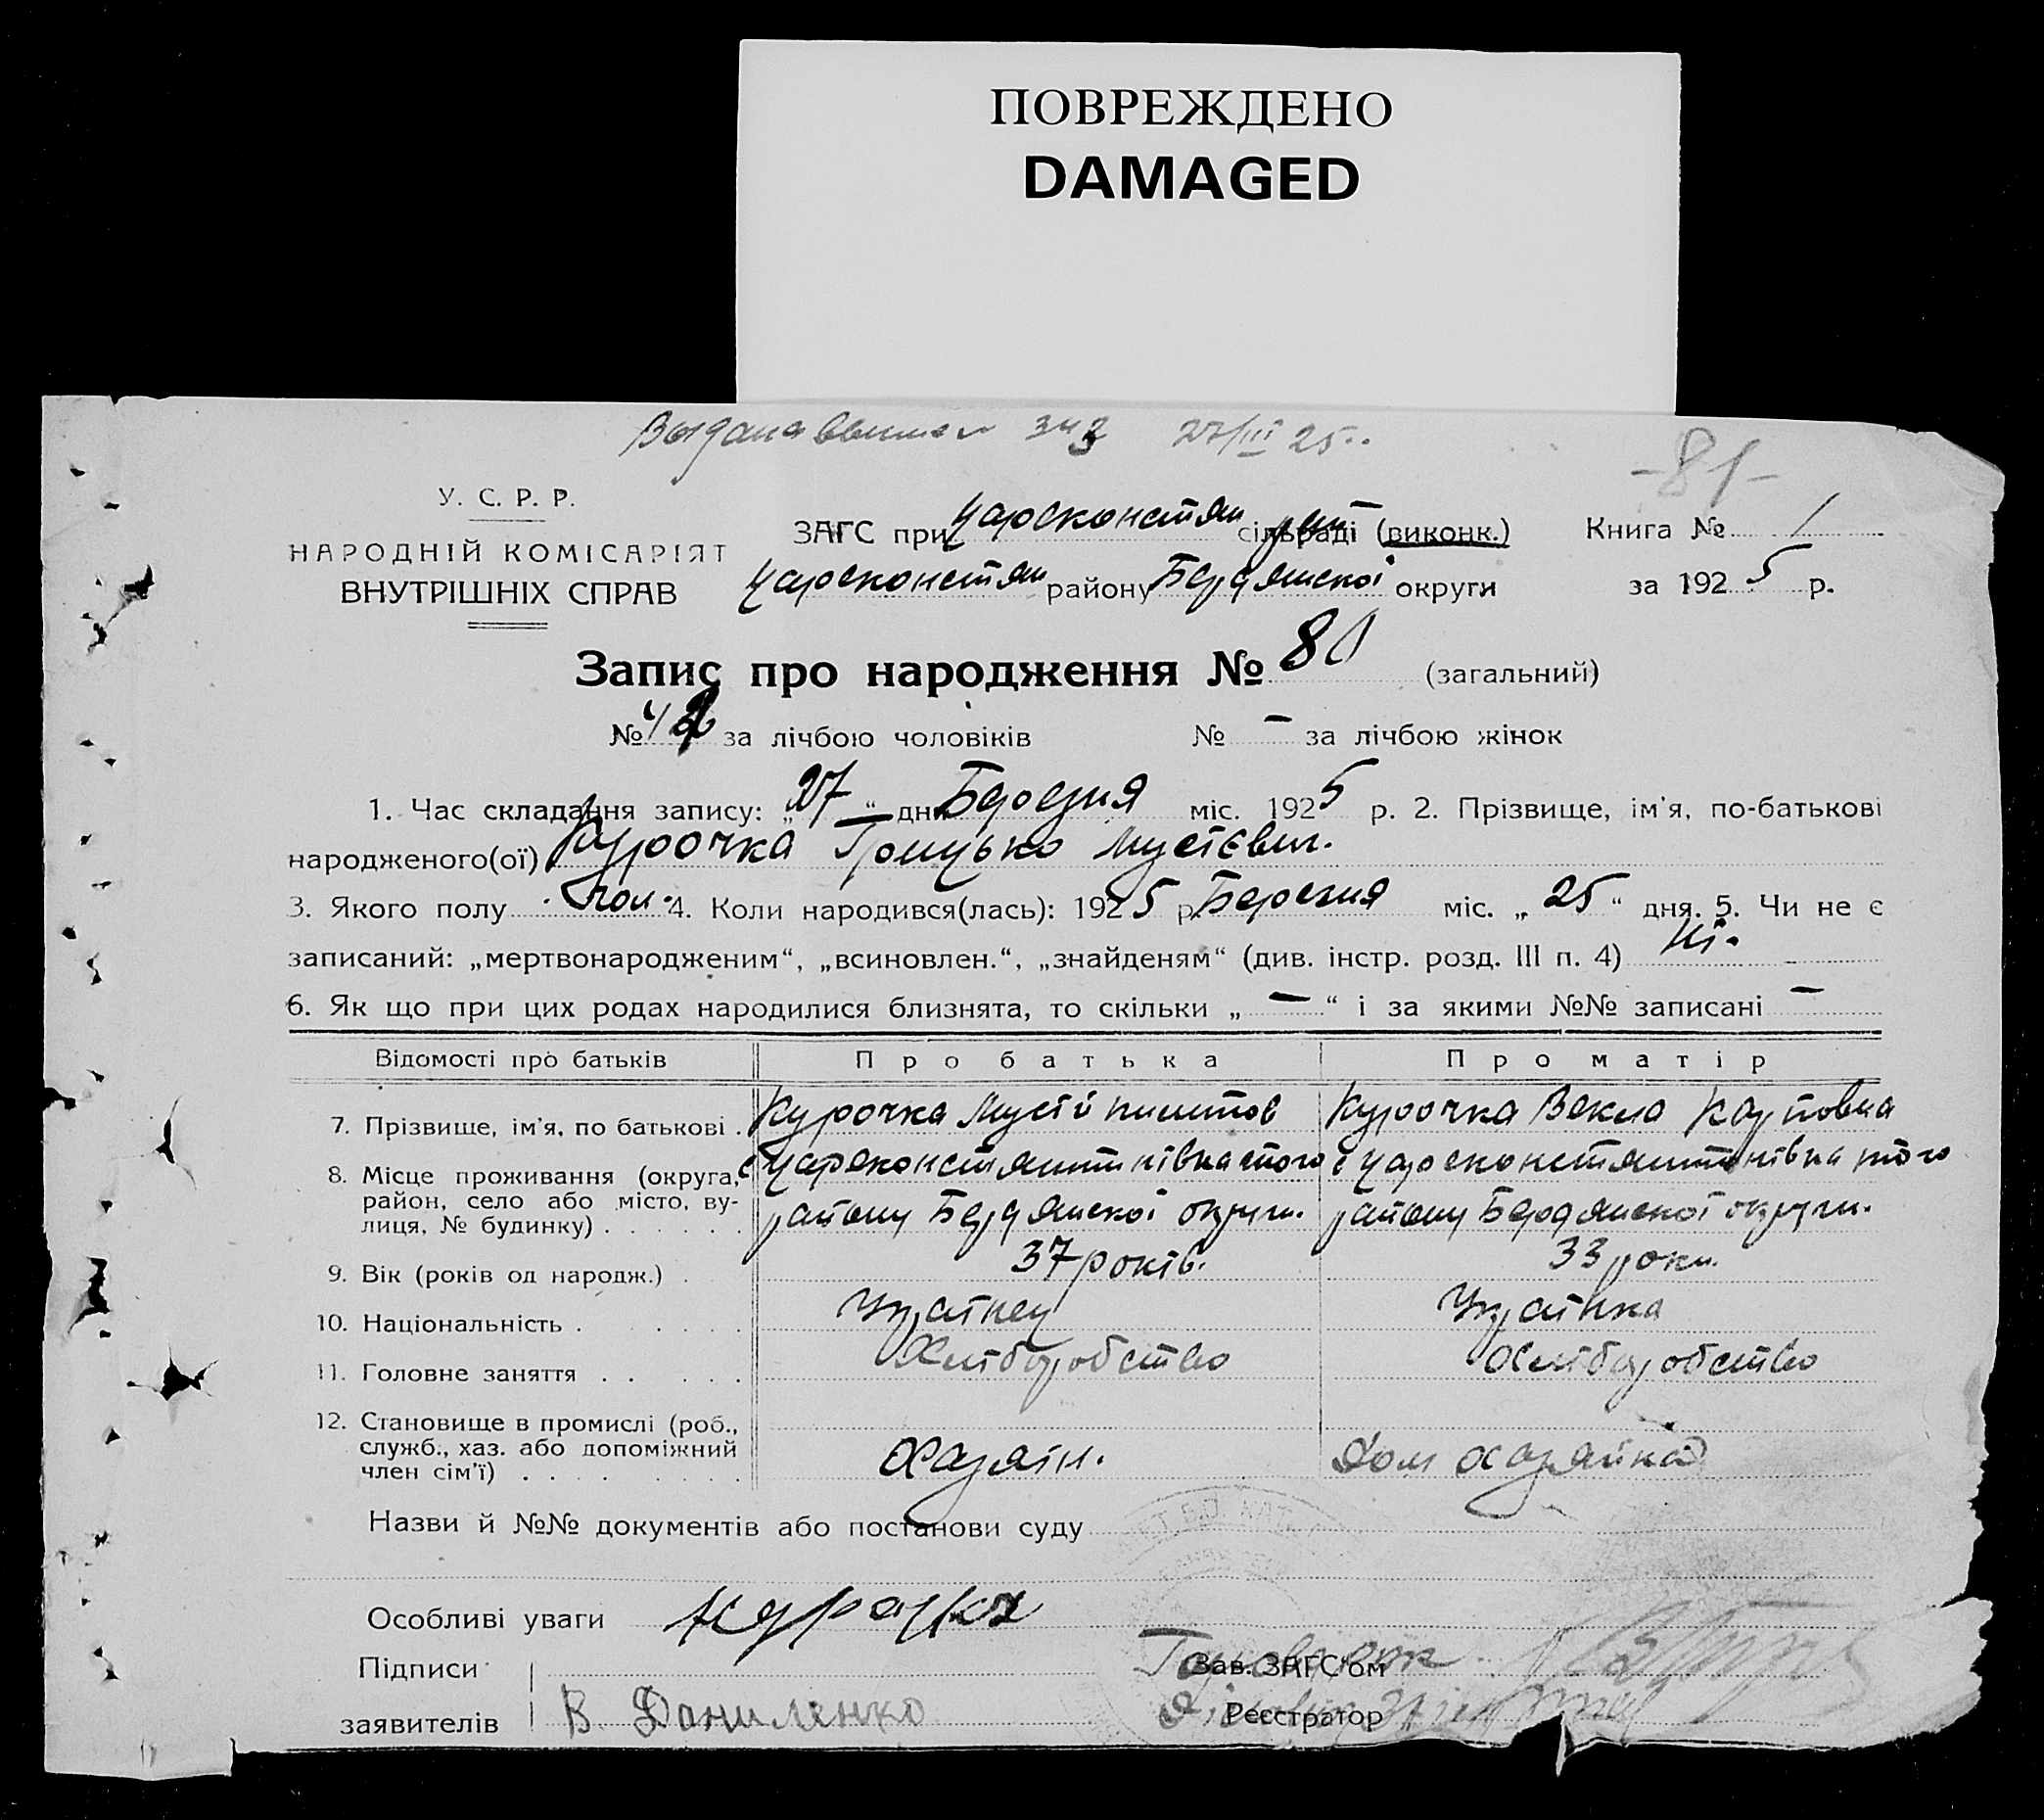 ПОВРЕЖДЕНО
DAMAGED
Выдана 343 27/III 25..
-81-
У. С. Р. Р.
НАРОДНІЙ КОМІСАРІЯТ
ВНУТРІШНІХ СПРАВ
ЗАГС при Царсконстян рай сільраді (виконк.)
Царсконстян району Бердянської округи
Книга № 1
за 1925 р.
Запис про народження № 81 (загальний)
№ 42 за лічбою чоловіків № – за лічбою жінок
1. Час складання запису: „27“ дн Березня міс. 1925 р. 2. Прізвище, ім'я, по-батькові
народженого(ої) Курочка Грицько Мусієвич.
3. Якого полу чол. 4. Коли народився(лась): 1925 р. Березня міс. „25“ дня. 5. Чи не є
записаний: „мертвонародженим“, „всиновлен.“, „знайденям“ (див. інстр. розд. III п. 4) ні.
6. Як що при цих родах народилися близнята, то скільки „ – “ і за якими №№ записані –
Відомості про батьків Про батька Про матір
7. Прізвище, ім'я, по батькові . Курочка Мусій Пилипов Курочка Векла Карповна
8. Місце проживання (округа, район, село або місто, вулиця, № будинку) . . . . .
с Царсконстянтинівка того району Бердянської округи.
с Царсконстянтинівка того району Бердянської округи.
9. Вік (років од народж.) . 37 років. 33 роки.
10. Національність . . . . . Украінец Украінка
11. Головне заняття . . . . . Хліборобство Хліборобство
12. Становище в промислі (роб., служб., хаз. або допоміжний член сім'ї) . . . . . . . Хазяїн. Дом хазяйка
Назви й №№ документів або постанови суду
Особливі уваги
Підписи
заявителів В. Даниленко
Зав. ЗАГС'ом
Реєстратор